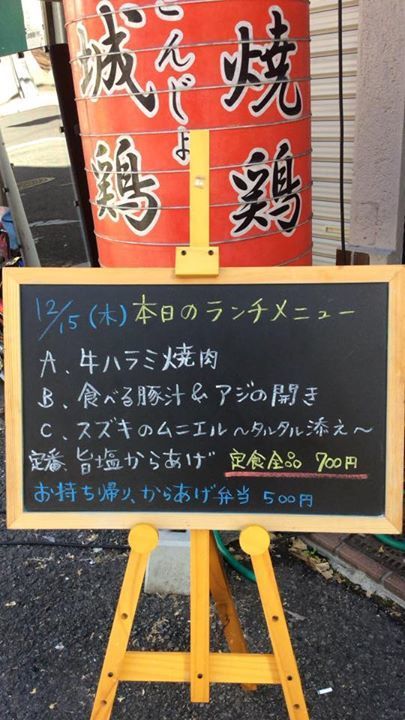 焼鶏
こんじょ
城鶏
12/15(木)本日のランチメニュー
A、牛ハラミ焼肉
B、食べる豚汁&アジの開き
C、スズキのムニエル~タルタル添え~
定番 旨塩からあげ 定食全品 700円
お持ち帰り、からあげ弁当 500円